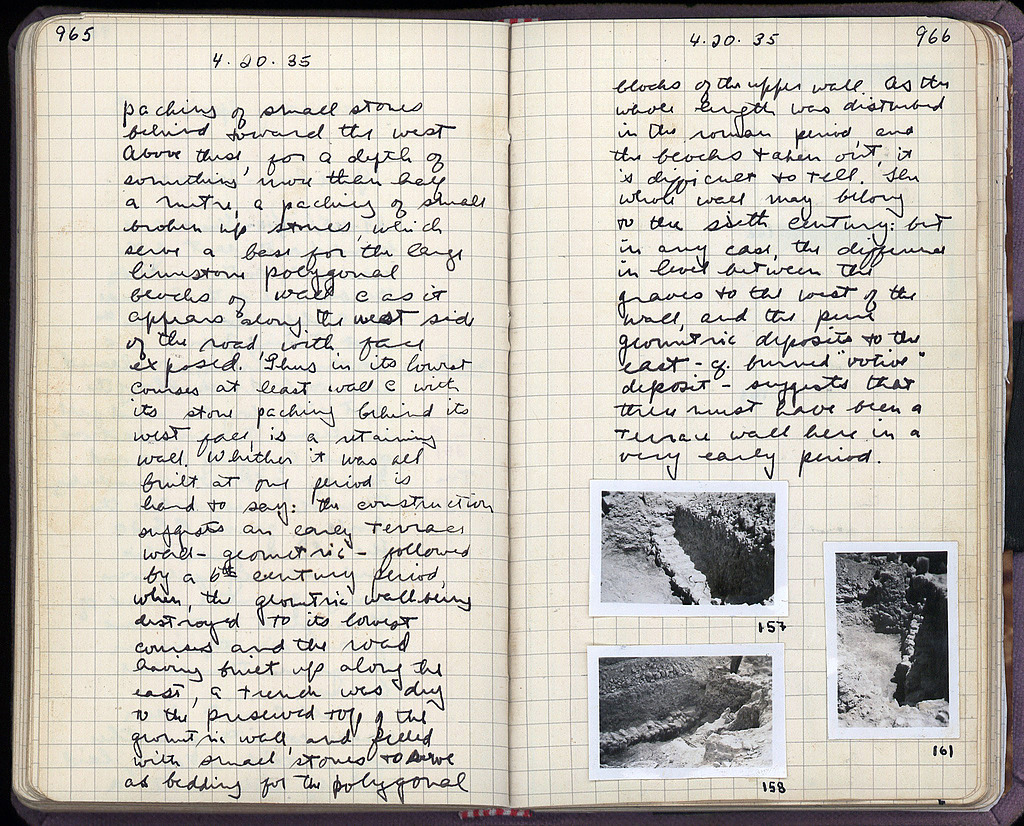 965
4.20.35
packing of small stones
behind toward the west
Above these, for a depth of
something more than half
a metre, a packing of small
broken up stones, which
serve a base for the large
limestone polygonal
blocks of wall C as it
appears along the west side
of the road, with face
exposed. Thus in its lowest
courses at least wall C with
its stone packing behind its
west face, is a retaining
wall. Whether it was all
built at one period is
hard to say: the construction
suggests an early terrace
wall - geometric - followed
by a 6th century period,
when, the geometric wall being
destroyed to its lowest
courses and the road
having built up along the
east, a trench was dug
to the preserved top of the
geometric wall, and filled
with small stones to serve
as bedding for the polygonal
4.20.35
966
blocks of the upper wall. As the
whole length was disturbed
in the roman period, and
the blocks taken out, it
is difficult to tell. The
whole wall may belong
to the sixth century: but
in any case, the difference
in level between the
graves to the west of the
wall, and the pure
geometric deposits to the
east - cf. burned "votive"
deposit - suggests that
there must have been a
terrace wall here in a
very early period.
157
158
161